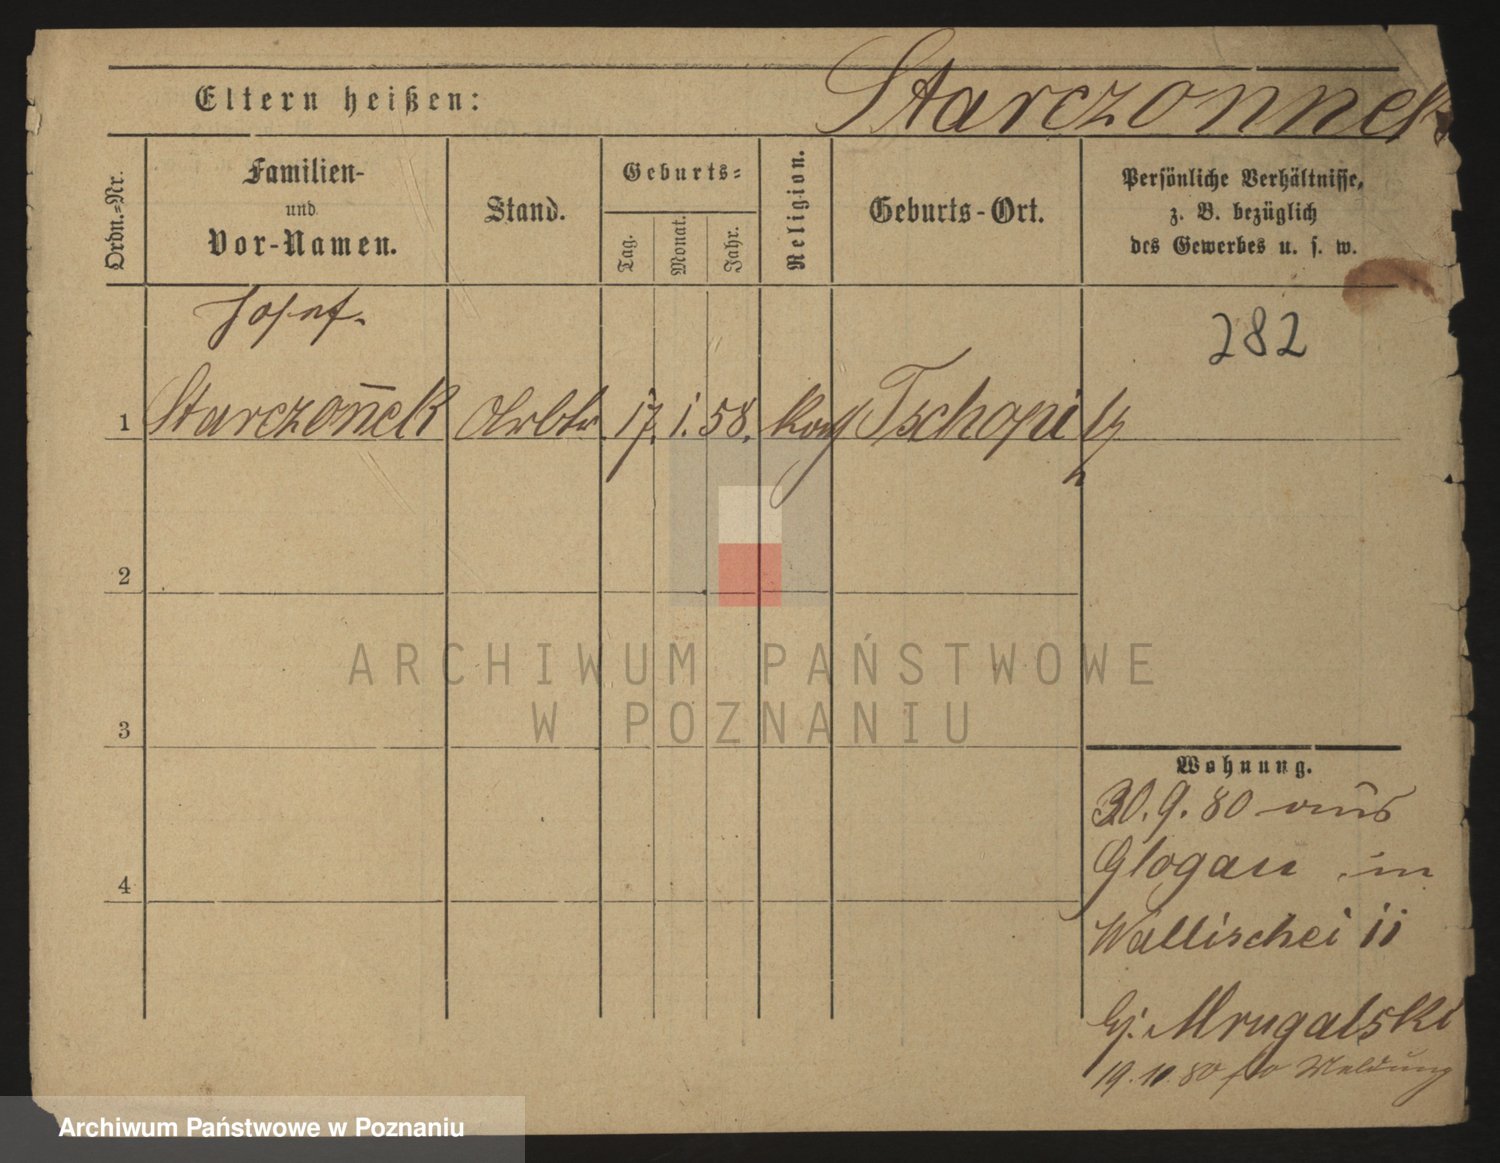 Starczonnek
Eltern heißen:
Ordn.-Nr.
Familien-
und
Vor-Namen.
Stand.
Geburts-
Tag.
Monat.
Jahr.
Religion.
Geburts-Ort.
Persönliche Verhältnisse,
z. B. bezüglich
des Gewerbes u. s. w.
Josef
282
1 Starczon̄ek Arbtr. 17. 1. 58. kath Tschopitz
2
3
4
ARCHIWUM PAŃSTWOWE
W POZNANIU
Wohnung.
30.9.80 aus
Glogau in
Wallischei 11
bj. Mrugalski
19.10.80 Meldung
Archiwum Państwowe w Poznaniu